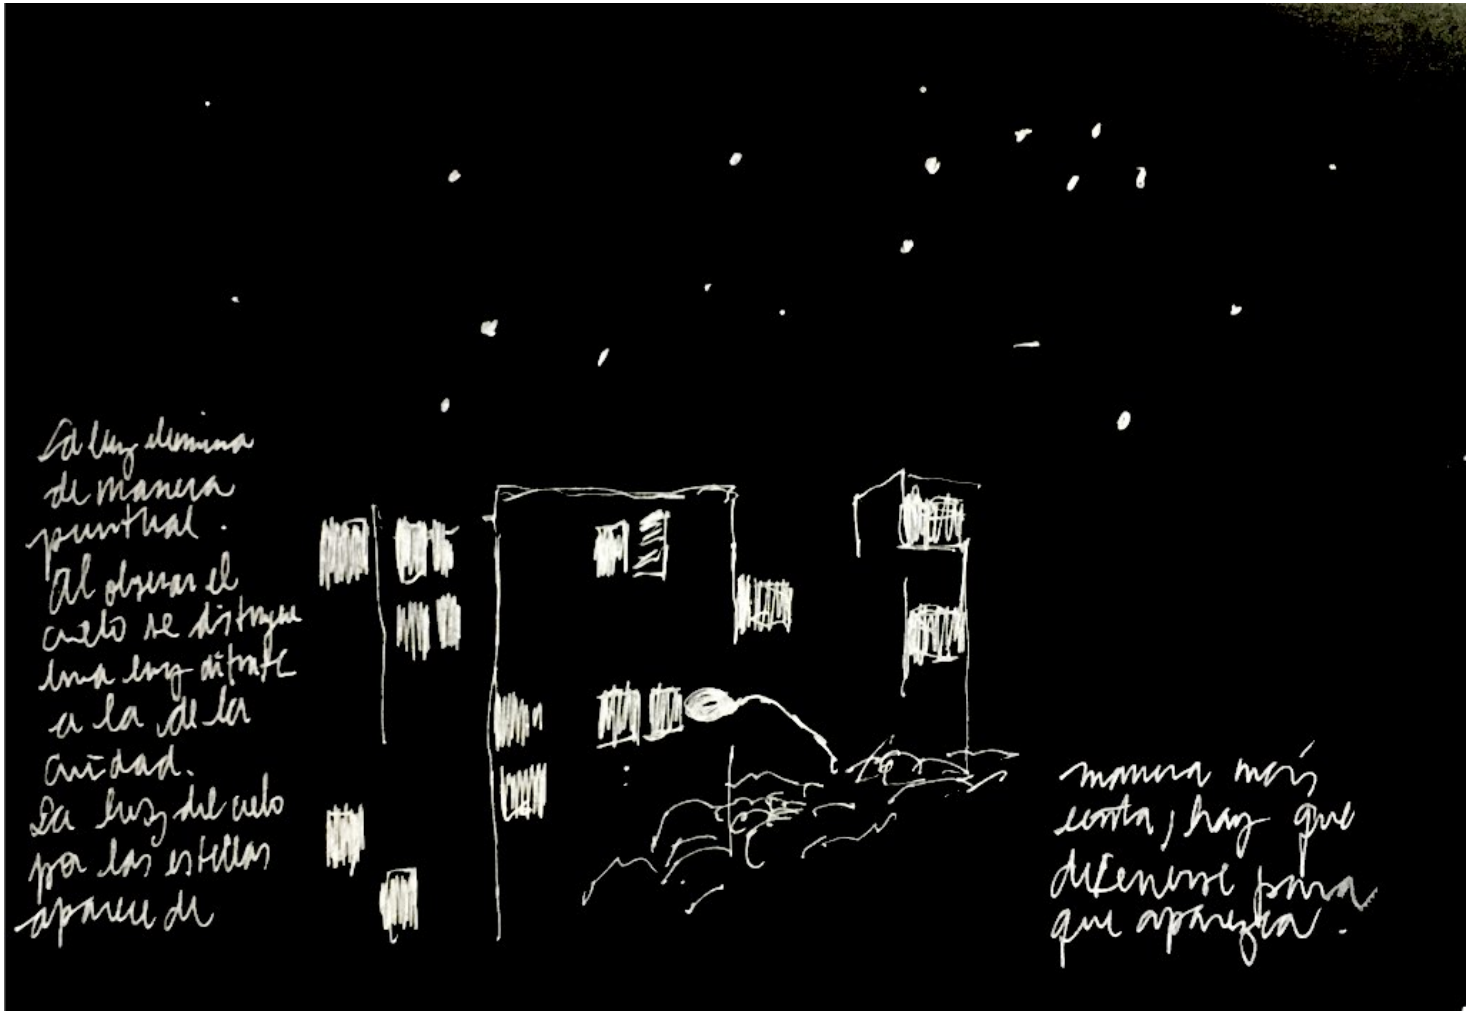 La luz ilumina
de manera
puntual.
Al observar el
cielo se distingue
una luz difrnte
a la de la
ciudad.
La luz del cielo
por las estrellas
aparece de
manera más
; hay que
detenerse para
que aparezca.